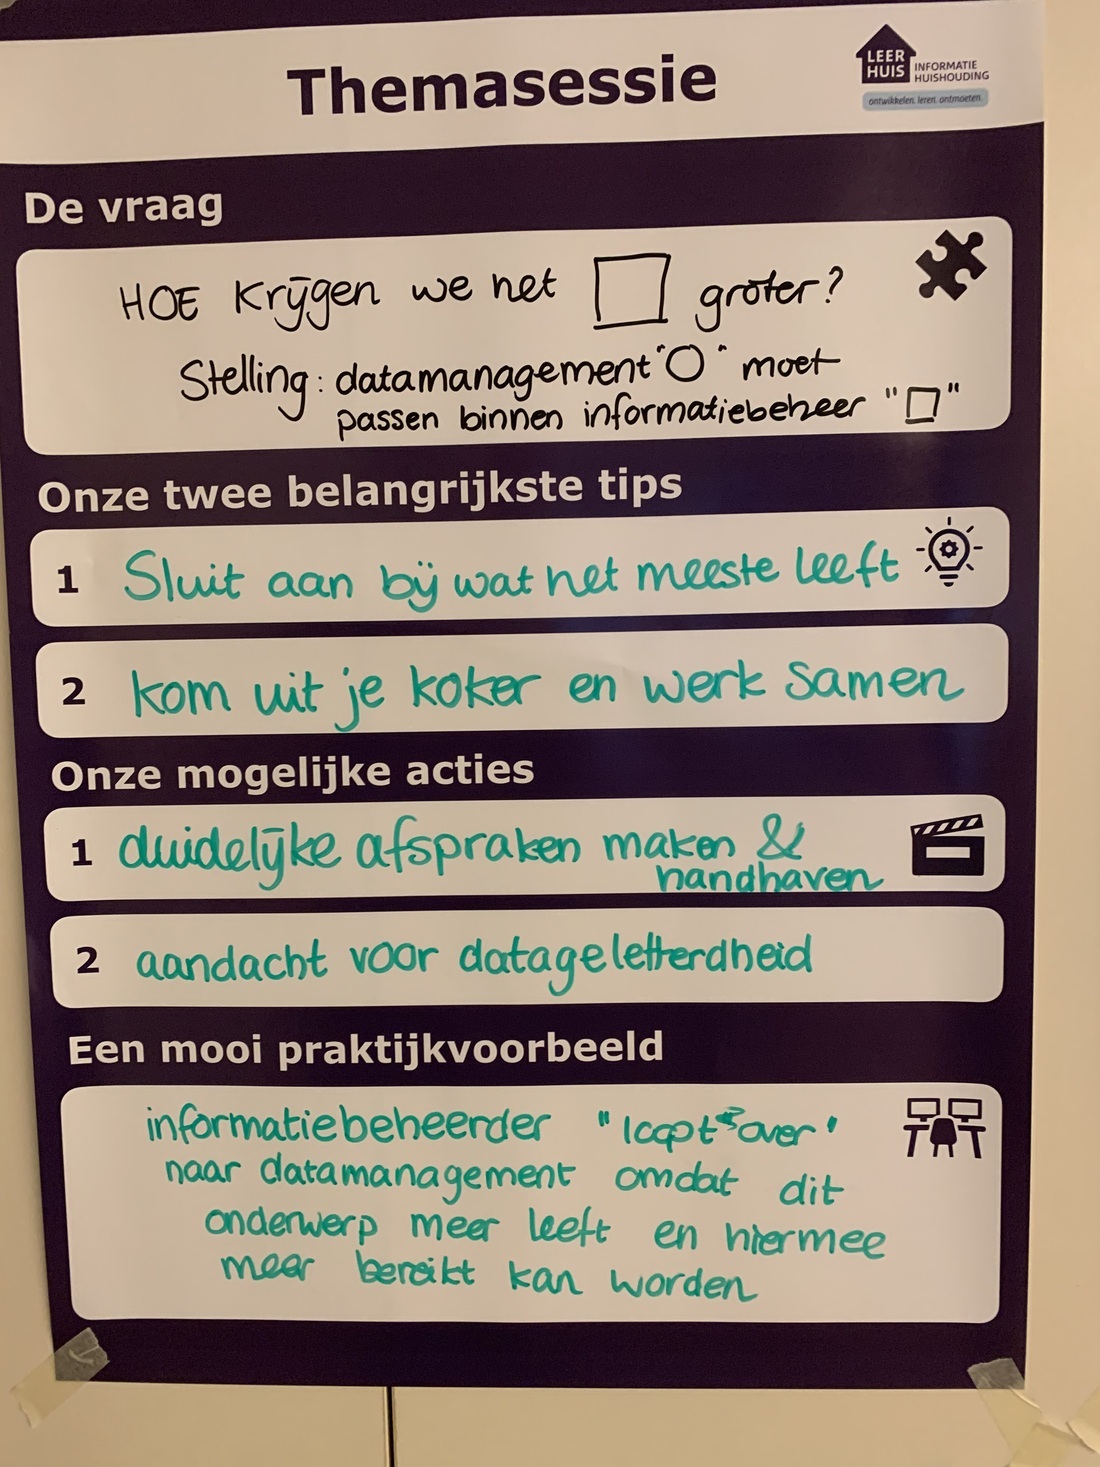 Themasessie
LEER
HUIS
INFORMATIE
HUISHOUDING
ontwikkelen. leren. ontmoeten.
De vraag
HOE Krijgen we het □ groter?
Stelling: datamanagement "O" moet
passen binnen informatiebeheer "□"
Onze twee belangrijkste tips
1 Sluit aan bij wat het meeste leeft
2 kom uit je koker en werk samen
Onze mogelijke acties
1 duidelijke afspraken maken &
handhaven
2 aandacht voor datageletterdheid
Een mooi praktijkvoorbeeld
informatiebeheerder "loopt over"
naar datamanagement omdat dit
onderwerp meer leeft en hiermee
meer bereikt kan worden